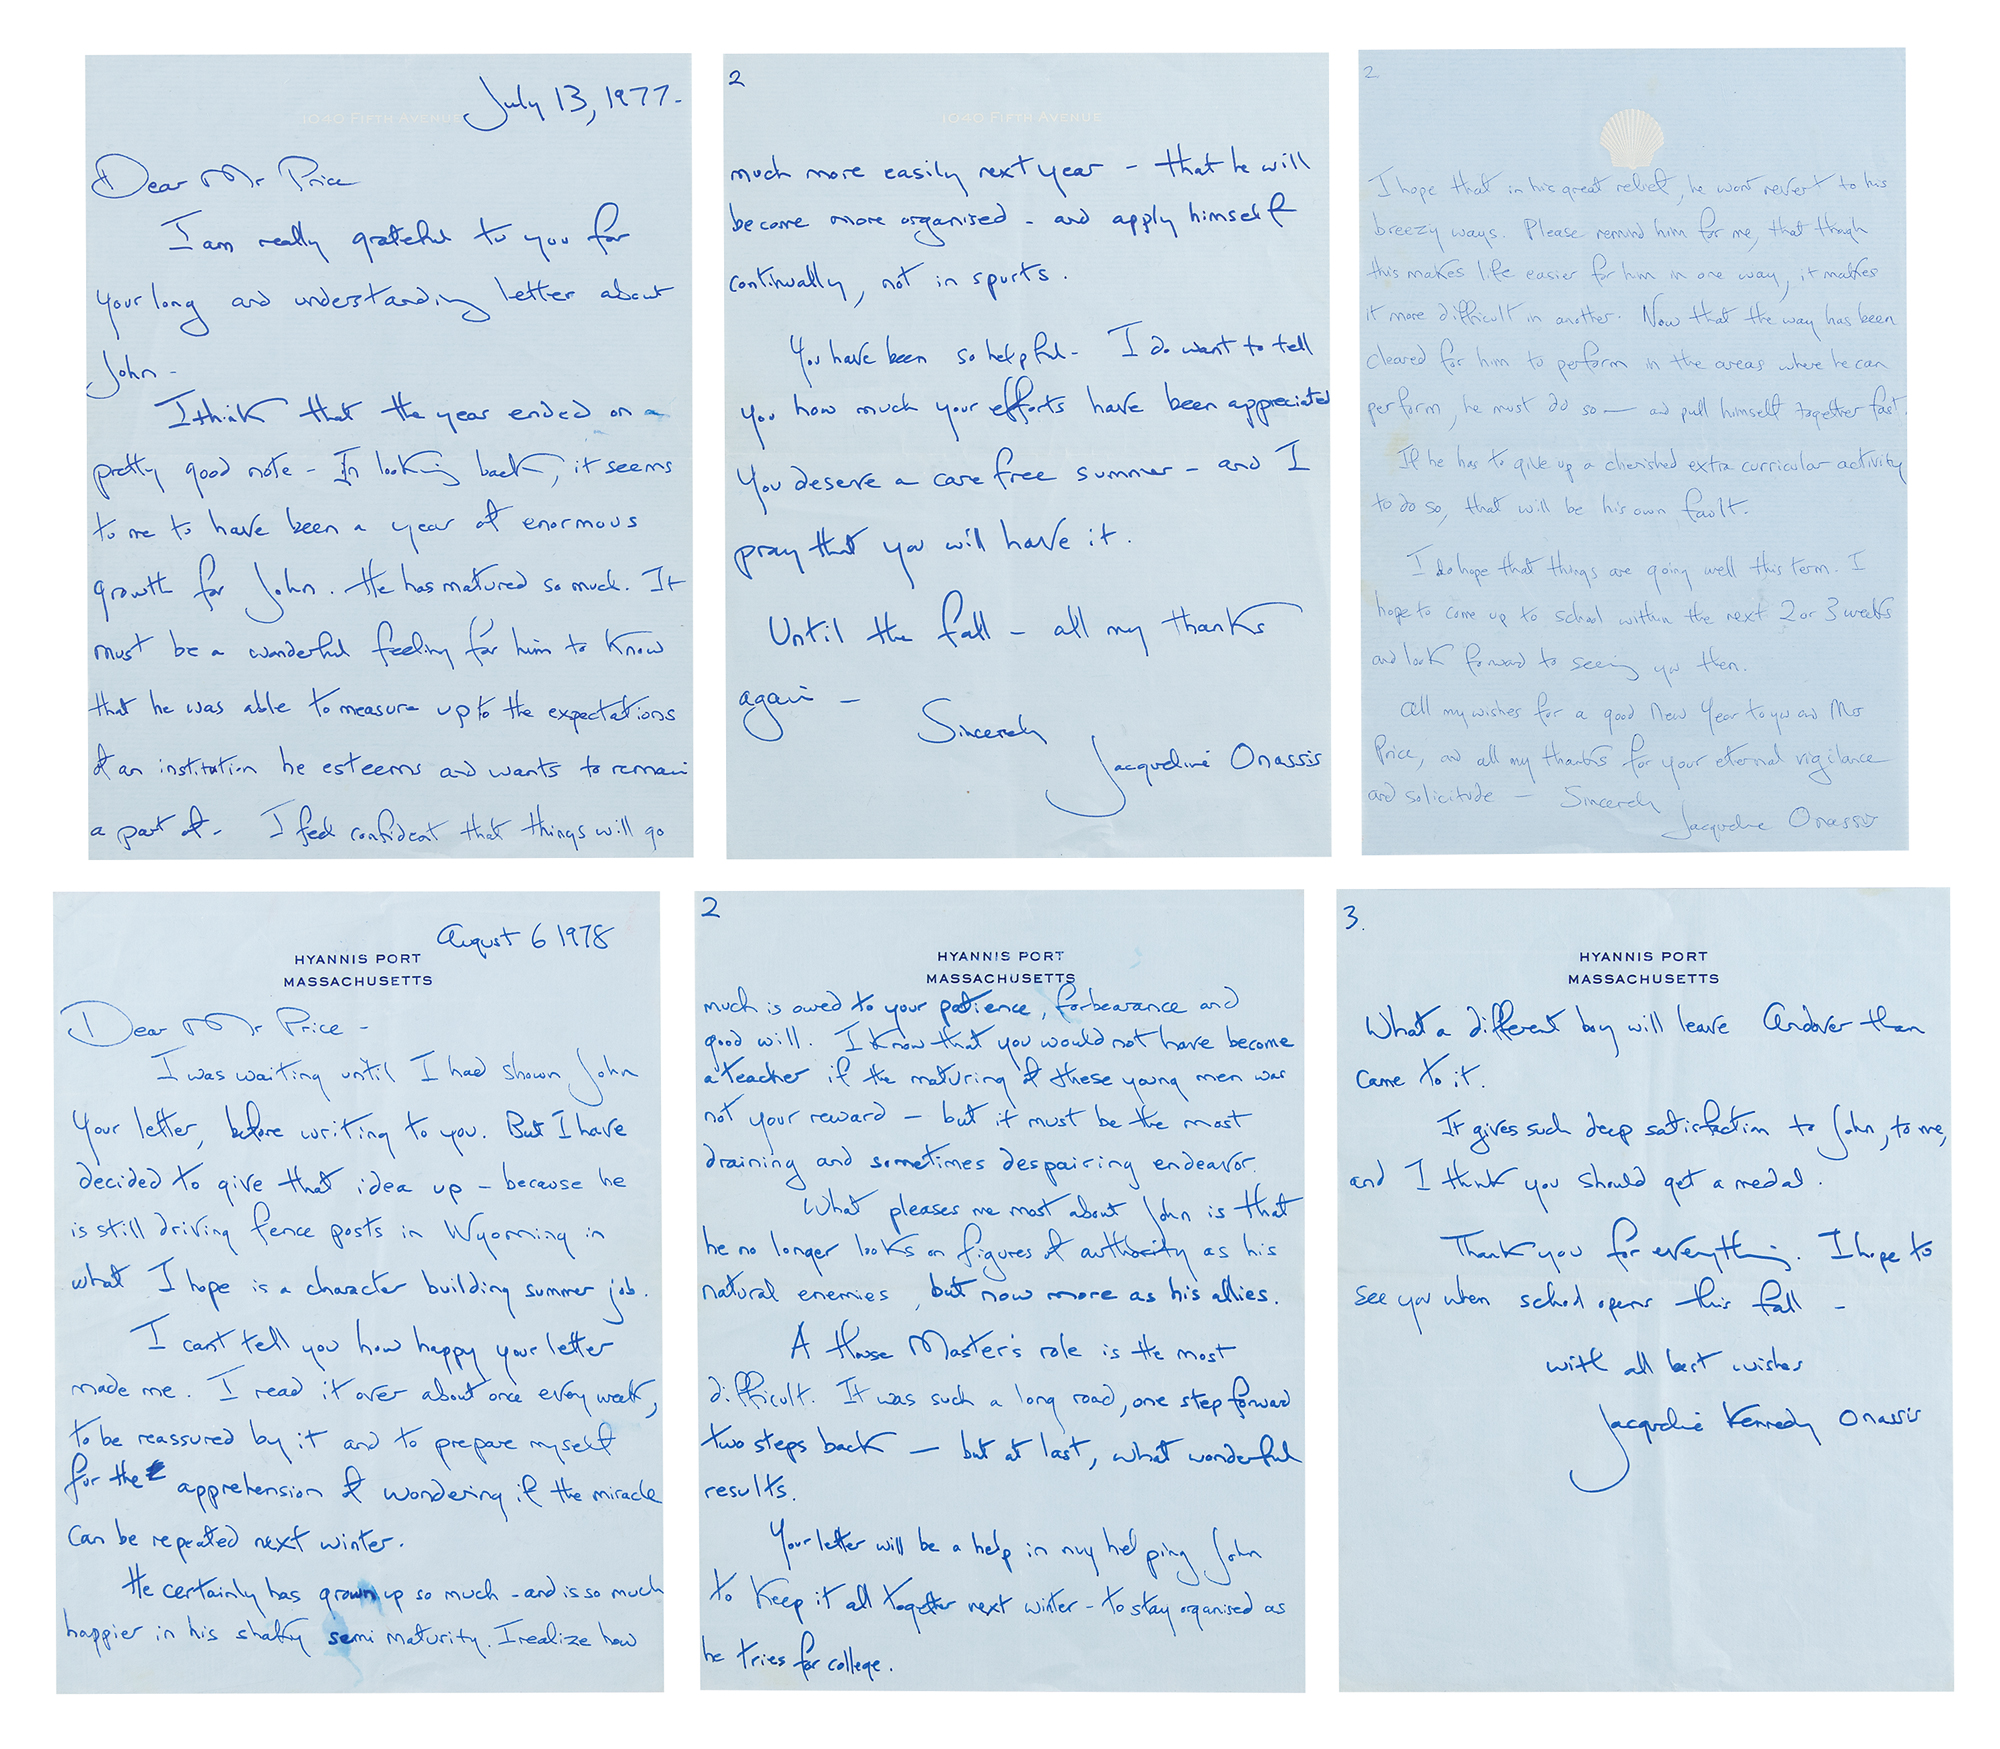 July 13, 1977-
1040 FIFTH AVENUE
Dear Mr Price
I am really grateful to you for
your long and understanding letter about
John -
I think that the year ended on a
pretty good note - In looking back, it seems
to me to have been a year of enormous
growth for John. He has matured so much. It
must be a wonderful feeling for him to know
that he was able to measure up to the expectations
of an institution he esteems and wants to remain
a part of - I feel confident that things will go
2
1040 FIFTH AVENUE
much more easily next year - that he will
become more organised - and apply himself
continually, not in spurts.
You have been so helpful - I do want to tell
you how much your efforts have been appreciated
You deserve a care free summer - and I
pray that you will have it.
Until the fall - all my thanks
again -
Sincerely
Jacqueline Onassis
2
I hope that in his great relief, he wont revert to his
breezy ways. Please remind him for me, that though
this makes life easier for him in one way, it makes
it more difficult in another. Now that the way has been
cleared for him to perform in the areas where he can
perform, he must do so — and pull himself together fast.
If he has to give up a cherished extra curricular activity
to do so, that will be his own fault.
I do hope that things are going well this term. I
hope to come up to school within the next 2 or 3 weeks
and look forward to seeing you then.
All my wishes for a good New Year to you and Mrs
Price, and all my thanks for your eternal vigilance
and solicitude — Sincerely
Jacqueline Onassis
August 6 1978
HYANNIS PORT
MASSACHUSETTS
Dear Mr Price -
I was waiting until I had shown John
your letter, before writing to you. But I have
decided to give that idea up - because he
is still driving fence posts in Wyoming in
what I hope is a character building summer job.
I cant tell you how happy your letter
made me. I read it over about once every week,
to be reassured by it and to prepare myself
for the apprehension of wondering if the miracle
can be repeated next winter.
He certainly has grown up so much - and is so much
happier in his shaky semi maturity. I realize how
2
HYANNIS PORT
MASSACHUSETTS
much is owed to your patience, forbearance and
good will. I know that you would not have become
a teacher if the maturing of these young men was
not your reward — but it must be the most
draining and sometimes despairing endeavor.
What pleases me most about John is that
he no longer looks on figures of authority as his
natural enemies, but now more as his allies.
A House Master's role is the most
difficult. It was such a long road, one step forward
two steps back — but at last, what wonderful
results.
Your letter will be a help in my helping John
to keep it all together next winter - to stay organised as
he tries for college.
3.
HYANNIS PORT
MASSACHUSETTS
What a different boy will leave Andover than
came to it.
It gives such deep satisfaction to John, to me,
and I think you should get a medal.
Thank you for everything. I hope to
see you when school opens this fall -
with all best wishes
Jacqueline Kennedy Onassis